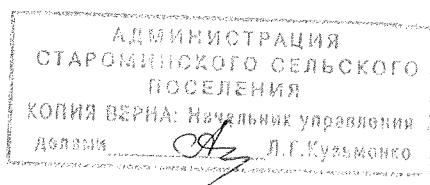 АДМИНИСТРАЦИЯ
СТАРОМИНСКОГО СЕЛЬСКОГО
ПОСЕЛЕНИЯ
КОПИЯ ВЕРНА: Начальник управления
делами Л.Г.Кузьменко